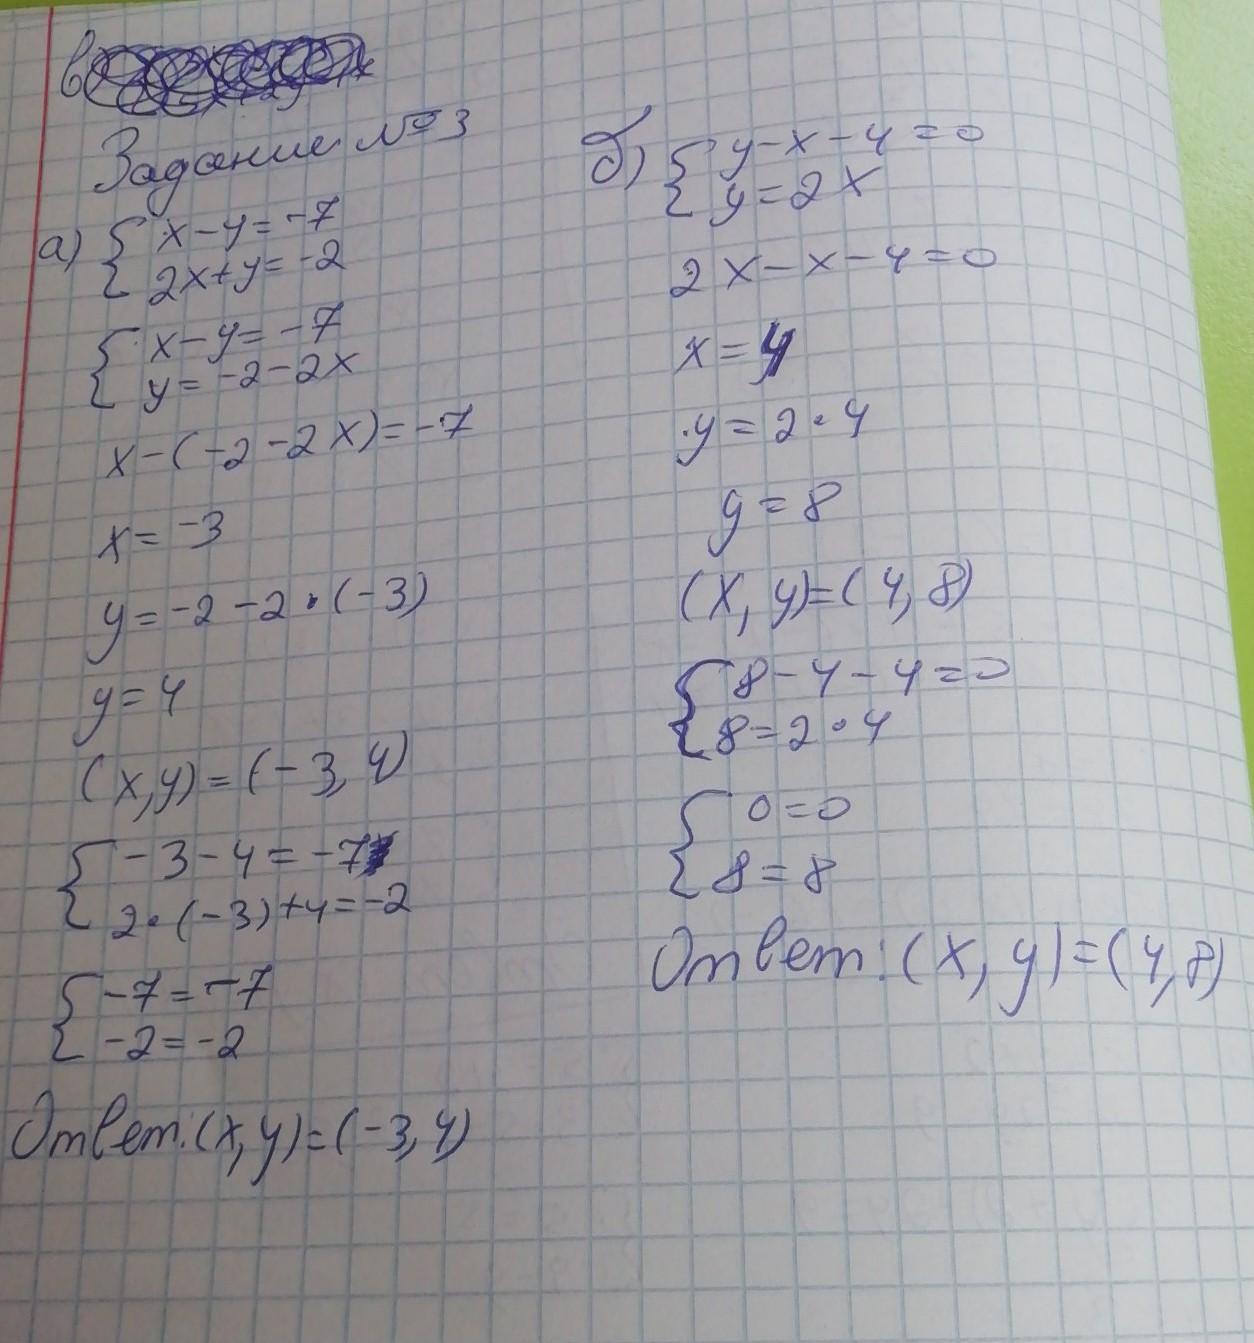 Задание №3
а) { x-y=-7
2x+y=-2
{ x-y=-7
y=-2-2x
x-(-2-2x)=-7
x=-3
y=-2-2·(-3)
y=4
(x,y)=(-3,4)
{ -3-4=-7
2·(-3)+4=-2
{ -7=-7
-2=-2
Ответ:(x,y)=(-3,4)
б) { y-x-4=0
y=2x
2x-x-4=0
x=4
y=2·4
y=8
(x,y)=(4,8)
{ 8-4-4=0
8=2·4
{ 0=0
8=8
Ответ:(x,y)=(4,8)